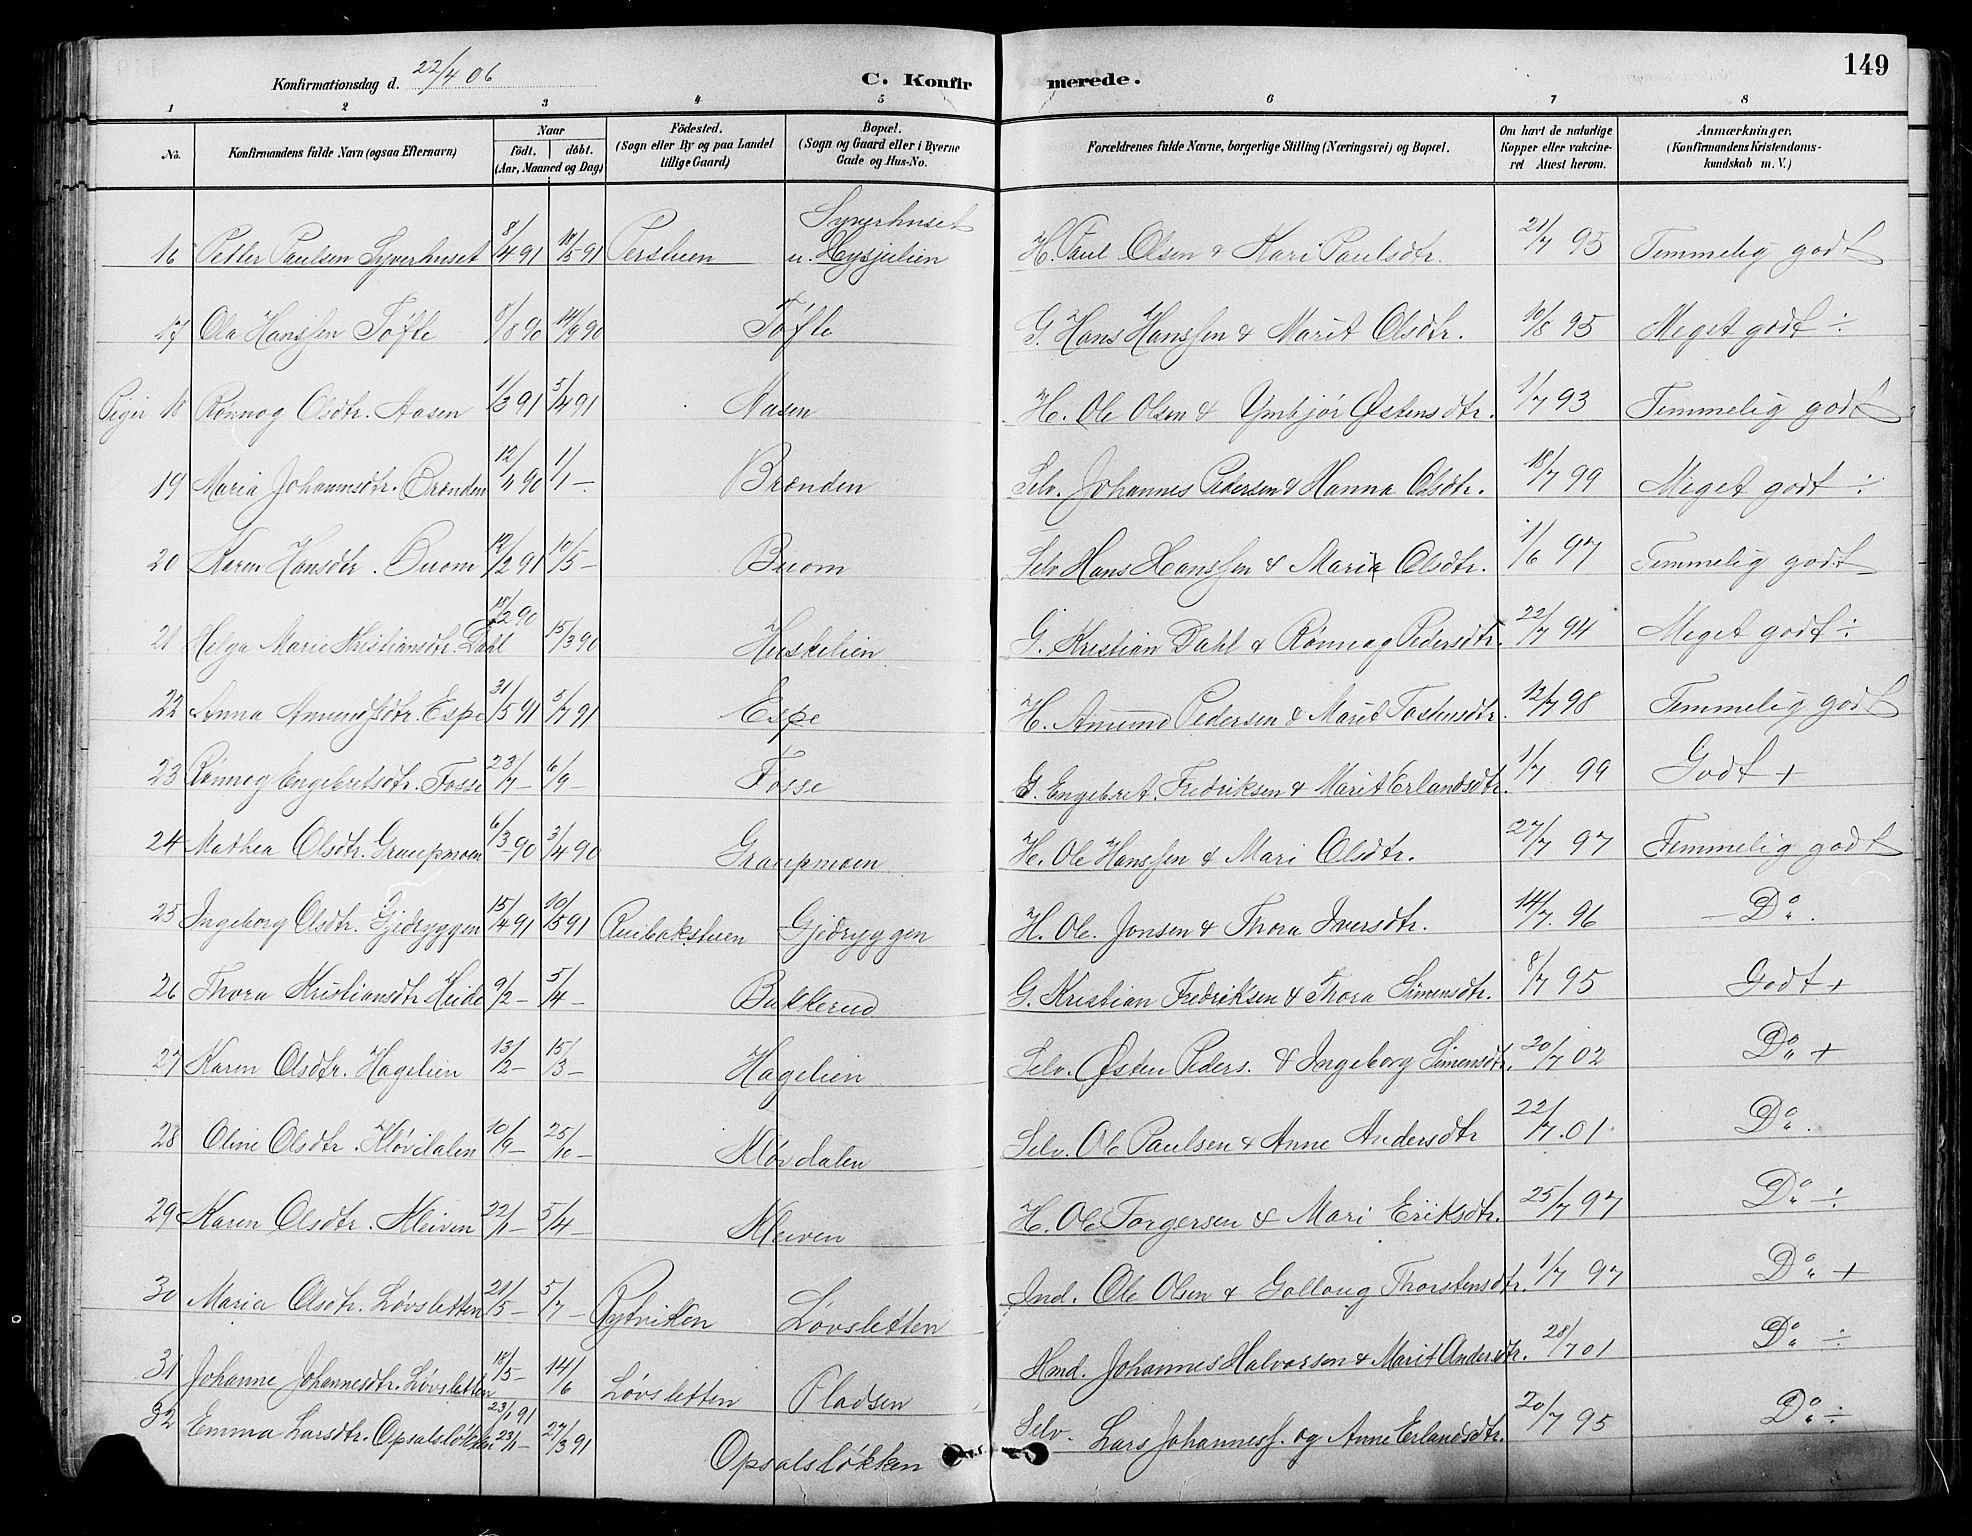 149
Konfirmationsdag d. 22/4 06
C. Konfirmerede.
1 2 3 4 5 6 7 8
No.
Konfirmandens fulde Navn (ogsaa Efternavn)
Naar
födt. döbt.
(Aar, Maaned og Dag)
Födested.
(Sogn eller By og paa Landet
tillige Gaard)
Bopæl.
(Sogn og Gaard eller i Byerne
Gade og Hus-No.
Forældrenes fulde Navne, borgerlige Stilling (Næringsvei) og Bopæl.
Om havt de naturlige
Kopper eller vakcine-
ret Attest herom.
Anmærkninger,
(Konfirmandens Kristendoms-
kundskab m. V.)
Syverhuset
16 Petter Paulsen Syverhuset 8/4 91 18/5 91 Perstuen u. Hysjulien H. Paul Olsen & Kari Paulsdtr. 21/7 95 Temmelig godt
17 Ola Hanssen Tøfte 8/8 90 14/9 90 Tøfte G. Hans Hanssen & Marit Olsdtr. 10/8 95 Meget godt ÷
Piger 18 Rønnog Olsdtr. Aasen 1/3 91 5/4 91 Aasen H. Ole Olsen & Ymbjør Østensdtr. 1/7 93 Temmelig godt
19 Maria Johannsdtr. Brænden 12/11 90 1/1 – Brænden Selv. Johannes Pedersen & Hanna Olsdtr. 18/7 99 Meget godt ÷
20 Karen Hansdtr. Buom 12/2 91 10/5 – Buom Selv Hans Hanssen & Mari Olsdtr. 1/6 97 Temmelig godt
21 Helga Marie Kristiansdtr. Dahl 15/2 90 15/3 90 Huskelien G. Kristian Dahl & Rønnog Pedersdtr. 22/7 94 Meget godt ÷
22 Anna Amundsdtr. Espe 31/5 91 5/7 91 Espe H. Amund Pedersen & Marit Tostensdtr. 12/7 98 Temmelig godt
23 Rønnog Engebretsdtr. Fosse 23/7 – 6/9 – Fosse G. Engebret Fredriksen & Marit Erlandsdtr. 1/7 99 Godt +
24 Mathea Olsdtr. Graupmoen 6/3 90 3/4 90 Graupmoen H. Ole Hanssen & Mari Olsdtr. 27/7 97 Temmelig godt
25 Ingeborg Olsdtr. Gjedryggen 15/4 91 10/5 91 Gjedryggen H. Ole Jonsen & Thora Iversdtr. 14/7 96 – Do.
26 Thora Kristiansdtr Heide 9/2 – 5/4 – Bakkerud G. Kristian Fredriksen & Thora Simensdtr. 8/7 95 Godt +
27 Karen Olsdtr. Hagelien 13/2 – 15/3 – Hagelien Selv. Østen Peders. & Ingeborg Simensdtr. 20/7 02 Do +
28 Oline Olsdtr. Kløvdalen 10/9 – 25/10 – Kløvdalen Selv. Ole Paulsen & Anne Andersdtr 22/7 01 Do.
29 Karen Olsdtr. Kleiven 22/1 – 5/4 – Kleiven H. Ole Torgersen & Mari Eriksdtr. 25/7 97 Do ÷
30 Maria Olsdtr. Løvsletten 21/5 – 5/7 – Rytviken Løvsletten Ind. Ole Olsen & Gollaug Thorstensdtr. 1/7 97 Do +
31 Johanne Johannesdtr. Løvsletten 18/5 – 14/6 Løvsletten Pladsen Hmd. Johannes Halvorsen & Marit Andersdtr. 28/7 01 Do ÷
32 Emma Larsdtr. Opsalsløkken 23/1 91 23/1 – 27/3 91 Opsalsløkken Selv. Lars Johanness. og Anne Erlandsdtr. 20/7 95 Do ÷